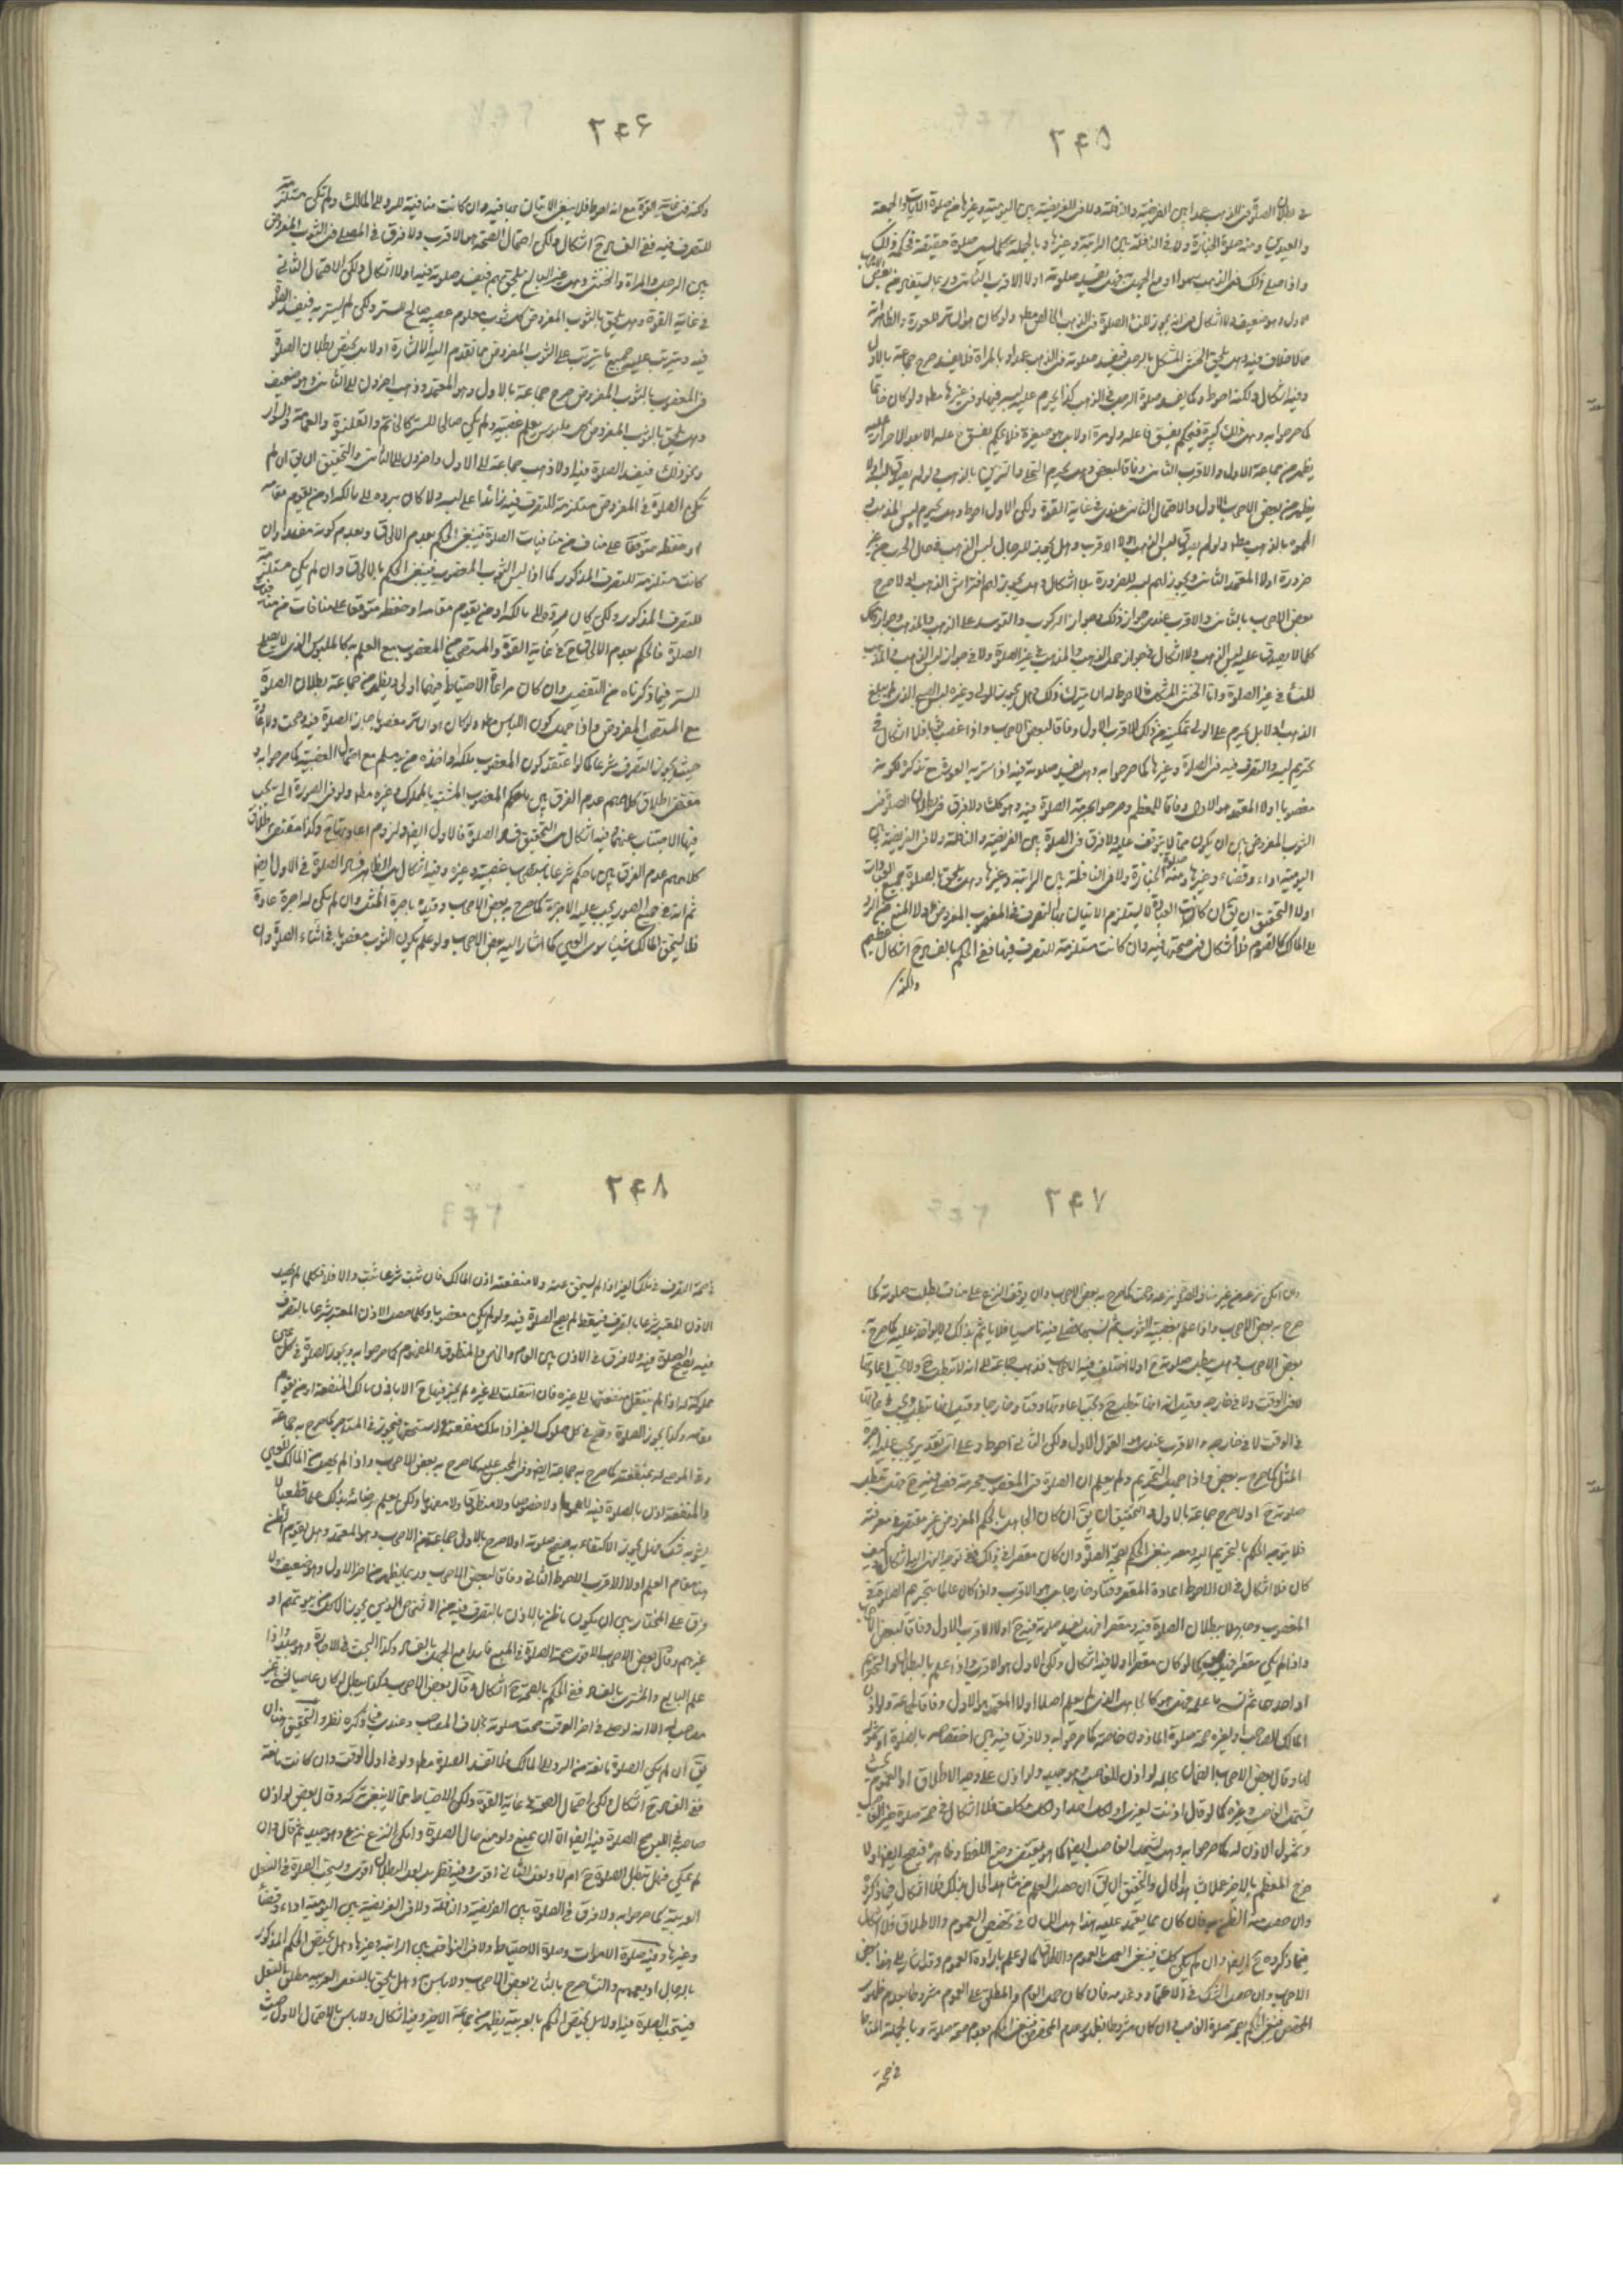 ٢۴۵
في بطلان الصلوة في الذهب عمدا بين الفريضة والنافلة ولا في الفريضة بين اليومية وغيرها من صلوة الايات والجمعة
والعيدين ومنه صلوة الجنازة ولا في النافلة بين الراتبة وغيرها وبالجملة كلما يسمى صلوة حقيقة فحكمه ذلك
واذا صلى في الذهب سهوا او مع الجهل فهل يفسد صلوته اولا الاقرب الثاني وربما يستفاد من بعض
الاول وهو ضعيف ولا اشكال في انه يجوز للنساء الصلوة في الذهب الخالص مطلقا ولو كان هو الساتر للعورة والظاهر انه
مما لا خلاف فيه وهل يلحق الخنثى المشكل بالرجل فيفسد صلوته في الذهب عمدا او بالمراة فلا يفسد صرح جماعة بالاول
وفيه اشكال ولكنه احوط وكما يفسد صلوة الرجل في الذهب كذا يحرم عليه لبسه فيها وفي غيرها مطلقا ولو كان خاتما
كما صرحوا به وهل ذلك كبيرة فيحكم بفسق فاعله ولو مرة اولا بل هو صغيرة فلا يحكم بفسق فاعله الا بعد الاصرار عليه
يظهر من جماعة الاول والاقرب الثاني وفاقا لبعض وهل يحرم التحلي والتزين بالذهب ولو لم يصدق اللبس اولا
يظهر من بعض الاصحاب الاول والاحتمال الثاني عندي في غاية القوة ولكن الاول احوط وهل يحرم لبس المذهب
المموه بالذهب مطلقا ولو لم يصدق لبس الذهب اولا الاقرب وهل يجوز للرجال لبس الذهب في حال الحرب من غير
ضرورة اولا المعتمد الثاني ويجوز لهم لبسه للضرورة بلا اشكال وهل يجوز لهم افتراش الذهب اولا صرح
بعض الاصحاب بالثاني والاقرب عندي جواز ذلك وجواز الركوب والتوسد على الذهب والمذهب وجواز كل
كلما لا يصدق عليه لبس الذهب ولا اشكال في جواز حمل الذهب والمذهب في غير الصلوة ولا في جواز لبس الذهب والمذهب
للنساء في غير الصلوة واما الخنثى المشكل فالاحوط له ان يترك ذلك وهل يجوز للولي وغيره الباس الصبي الذي لم يبلغ
الذهب اولا بل يحرم على الولي تمكينه من ذلك الاقرب الاول وفاقا لبعض الاصحاب واذا غصب ثوبا فلا اشكال في
تحريم لبسه والتصرف فيه في الصلوة وغيرها كما صرحوا به وهل يفسد صلوته فيه اذا ستر به العورة مع تذكره لكونه
مغصوبا اولا المعتمد هو الاول وفاقا للمعظم وصرحوا بحرمة الصلوة فيه وهو كذلك ولا فرق في بطلان الصلوة في
الثوب المفروض بين ان يكون مما لا يتوقف عليه ولا فرق في الصلوة بين الفريضة والنافلة ولا في الفريضة بين
اليومية اداء وقضاء وغيرها ومنه صلوة الجنازة ولا في النافلة بين الراتبة وغيرها وهل يلحق بالصلوة جميع العبادات
اولا التحقيق ان يق ان كانت العبادة لا يستلزم الاتيان بها التصرف في المغصوب المفروض ولا المنع من الرد
الى المالك كالصوم فلا اشكال في صحتها فيه وان كانت مستلزمة للتصرف فيها ففي الحكم بالفساد ح اشكال عظيم
ولكنه
٢۴۶
ولكنه في غاية القوة مع انه احوط فلا ينبغي الاتيان بها فيه وان كانت منافية للرد الى المالك ولم تكن مستلزمة
للتصرف فيه ففي الفساد ح اشكال ولكن احتمال الصحة هو الاقرب ولا فرق في المصلى في الثوب المفروض
بين الرجل والمراة والخنثى وهل غير البالغ يلحق بهم فيفسد صلوته فيه اولا اشكال ولكن الاحتمال الثاني
في غاية القوة وهل يلحق بالثوب المفروض كل ثوب معلوم غصبيته صالح للستر ولكن لم يستر به فيفسد الصلوة
فيه ويترتب عليه جميع ما يترتب على الثوب المفروض مما تقدم اليه الاشارة اولا بل يختص بطلان الصلوة
في المغصوب بالثوب المفروض صرح جماعة بالاول وهو المعتمد وذهب اخرون الى الثاني وهو ضعيف
وهل يلحق بالثوب المفروض كل ملبوس يعلم غصبيته ولم يكن صالحا للستر كالخاتم والقلنسوة والعمامة والسوار
ونحو ذلك فيفسد الصلوة فيه اولا ذهب جماعة الى الاول واخرون الى الثاني والتحقيق ان يق ان لم
تكن الصلوة في المفروض مستلزمة للتصرف فيه زائدا على لبسه ولا كان رده الى مالكه او من يقوم مقامه
او حفظه متوقفا على مناف من منافيات الصلوة فينبغي الحكم بعدم الالحاق وبعدم كونه مفسدا وان
كانت مستلزمة للتصرف المذكور كما اذا لبس الثوب المغصوب فينبغي الحكم بالالحاق وان لم يكن مستلزمة
للتصرف المذكور ولكن كان رده الى مالكه او من يقوم مقامه او حفظه متوقفا على منافيات من منافيات
الصلوة فالحكم بعدم الالحاق ح في غاية القوة والمستصحب من المغصوب مع العلم به كالملبوس الذي لا يصلح
للستر فيما ذكرناه من التفصيل وان كان مراعاة الاحتياط فيهما اولى ويظهر من جماعة بطلان الصلوة
مع المستصحب المفروض واذا جهل كون اللباس مطلقا ولو كان هو الساتر مغصوبا جاز الصلوة فيه وصحت ولا اعادة
حيث يجوز التصرف شرعا كما لو اعتقد كون المغصوب ملكه او اخذه من يد مسلم مع احتمال الغصبية كما صرحوا به و
مقتضى اطلاق كلامهم عدم الفرق بين ما علم المغصوب المشتبه بالمملوك وغيره مطلقا ولو في الصورة التي يجب
فيها الاجتناب عنهما فيه اشكال بل التحقيق فساد الصلوة فالاول ايضا ولزوم اعادتها ح وكذا مقتضى اطلاق
كلامهم عدم الفرق بين ما حكم شرعا باستصحاب غصبيته وغيره وفيه اشكال بل الظاهر فساد الصلوة في الاول ايضا
ثم انه في جميع الصور يجب عليه الاجرة كما صرح به بعض الاصحاب وقيده باجرة المثل وان لم يكن له اجرة عادة
فلا يستحق المالك شيئا سوى العين كما اشار اليه بعض الاصحاب ولو علم بكون الثوب مغصوبا في اثناء الصلوة وان
٢۴٧
وان امكن نزعه من غير مناف الصلوة نزعه وصحت كما صرح به بعض الاصحاب وان توقف النزع على مناف بطلت صلوته كما
صرح به بعض الاصحاب واذا علم بغصبية الثوب ثم نسيها فصلى فيه ناسيا فلا ياثم بذلك ولا مؤاخذة عليه كما صرح به
بعض الاصحاب وهل يبطل صلوته ح اولا اختلف فيه الاصحاب فذهب جماعة الى انه لا تبطل ح ولا يجب اعادتها
لا في الوقت ولا في خارجه وقيل انها تبطل ح ويجب اعادتها وقتا وخارجا وقيل انها تبطل ويجب اعادتها
في الوقت لا في خارجه والاقرب عندي هو القول الاول ولكن الثاني احوط وعلى اي تقدير يجب عليه اجرة
المثل كما صرح به بعض واذا جهل التحريم ولم يعلم ان الصلوة في المغصوب محرمة فصلى فيه ح فهل تبطل
صلوته ح اولا صرح جماعة بالاول والتحقيق ان يق ان كان الجاهل بالحكم المفروض غير مقصر في معرفته
فلا يتوجه الحكم بالتحريم اليه بل ينبغي الحكم بصحة الصلوة وان كان مقصرا في ذلك ففي توجه النهي اليه اشكال وكيف
كان فلا اشكال في ان الاحوط اعادة المقصر وقتا وخارجا بل هو الاقرب ولو كان عالما بتحريم الصلوة في
المغصوب وجاهلا ببطلان الصلوة فيه ومقصرا فهل يفسد صلوته فيه ح اولا الاقرب الاول وفاقا لبعض الاصحاب
واذا لم يكن مقصرا كما لو كان مقصرا اولا فيه اشكال ولكن الاول هو الاقرب واذا علم بالبطلان والتحريم
او احدهما ثم نسى ما علمه فهل هو كالجاهل الذي لم يعلم اصلا اولا المعتمد هو الاول وفاقا لجماعة ولو اذن
المالك للغاصب او لغيره صحة صلوة الماذون خاصة كما صرحوا به ولا فرق فيه بين اختصاصه بالصلوة او نحوه
لها وقال بعض الاصحاب الضمان بحاله لو اذن للغاصب وهو جيد ولو اذن على وجه الاطلاق او العموم بحيث
يشمل الغاصب وغيره كما لو قال اذنت لغيري او لكل احد او لكل مكلف فلا اشكال في صحة صلوة غير الغاصب
وشمول الاذن له كما صرحوا به وهل يشمل الغاصب ايضا كما هو مقتضى وضع اللفظ وظاهره فيصح ايضا اولا
صرح المعظم بالاخر عملا بشاهد الحال والتحقيق ان يق ان حصل العلم من شاهد الحال بذلك فلا اشكال فيما ذكروه
وان حصل منه الظن به فان كان مما يعتمد عليه هذا اهل اللسان في تخصيص العموم والاطلاق فلا اشكال
فيما ذكروه ح ايضا وان لم يكن كذلك فينبغي العمل بالعموم والاطلاق كما لو علم بارادة العموم وقد اشار الى هذا بعض
الاصحاب وان حصل الشك في الاعتماد وعدمه فان كان حمل العام والمطلق على العموم مشروطا بعدم ظهور
المخصص فينبغي الحكم بصحة صلوة الغاصب وان كان مشروطا بظهور عدم المخصص فينبغي الحكم بعدم صحة صلوته وبالجملة المناط
في صحة
٢۴٨
في صحة التصرف في ملك الغير اذا لم يستحق عينه ولا منفعته اذن المالك فان ثبت شرعا ثبت والا فلا فكلما لم يحصل
الاذن المعتبر شرعا بالتصرف فيه فقط لم يصح الصلوة فيه ولو لم يكن مغصوبا وكلما حصل الاذن المعتبر شرعا بالتصرف
فيه يصح الصلوة فيه ولا فرق في الاذن بين العام والخاص والمنطوق والمفهوم كما صرحوا به ويجوز الصلوة في كل عين
مملوكة له اذا لم ينتقل منفعتها الى غيره فان انتقلت الى غيره لم يجز فيها ح الا باذن مالك المنفعة او من يقوم
مقامه وكذا يجوز الصلوة وتصح في كل مملوك الغير اذا ملك منفعته واستحق فيجوز في المستاجر كما صرح به جماعة
وفي الموصى له بمنفعته كما صرح به جماعة ايضا وفي المحبس عليه كما صرح به بعض الاصحاب واذا لم يحصل من المالك للعين
والمنفعة اذن بالصلوة فيه لا عموما ولا خصوصا ولا منطوقا ولا مفهوما ولكن يعلم برضائه بذلك علما قطعيا لا
يشوبه شك فهل يجوز الاكتفاء به فيصح صلوته اولا صرح بالاول جماعة من الاصحاب وهو المعتمد وهل يقوم الظن
هنا مقام العلم اولا الاقرب الاحوط الثاني وفاقا لبعض الاصحاب وربما يظهر من اخر الاول وهو ضعيف ولا
فرق على المختار بين ان يكون باظن بالاذن بالتصرف فيه من الاشخاص الذين يجوز الاكل من بيوتهم او
غيرهم وقال بعض الاصحاب الاقوى صحة الصلوة في المبيع فاسدا مع الجهل بالفساد وكذا البحث في الاجارة وهو جيد واذا
علم البايع والمشتري بالفساد ففي الحكم بالصحة ح اشكال وقال بعض الاصحاب وكما يبطل لو كان غاصبا لشيء غير
مصاحب له الا انه لو صلى في اخر الوقت صحت صلوته بخلاف المصاحب وعندي فيما ذكره نظر والتحقيق هنا ان
يق ان لم يكن الصلوة مانعة من الرد الى المالك فلا تفسد الصلوة مطلقا ولو في اول الوقت وان كانت مانعة
ففي الفساد ح اشكال ولكن احتمال الصحة في غاية القوة ولكن الاحتياط مما لا ينبغي تركه وقال بعض لو اذن
صاحبه في اللبس صح الصلوة فيه ايضا الا ان يمنع ولو منع حال الصلوة وامكن النزع نزع وهو جيد ثم قال وان
لم يمكن فهل تبطل الصلوة ح ام لا ولعل الثاني اقوى وفيه نظر بل لعل البطلان اقوى ويستحب الصلوة في النعل
العربية كما صرحوا به ولا فرق في الصلوة بين الفريضة والنافلة ولا في الفريضة بين اليومية اداء وقضاء
وغيرها ومنه صلوة الاموات وصلوة الاحتياط ولا في النوافل بين الراتبة وغيرها وهل يختص الحكم المذكور
بالرجال او يعمهم والنساء صرح بالثاني بعض الاصحاب ولا باس به وهل يلحق بالنعل العربية مطلق النعل
فيستحب الصلوة فيه اولا بل يختص الحكم بالعربية يظهر من جماعة الاخير وفيه اشكال ولا باس بالاحتمال الاول حيث